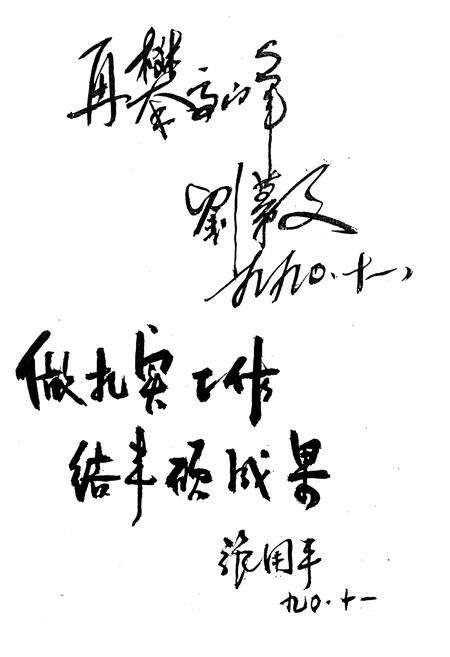 再攀高峰
劉慕文
九九〇.十一
做扎实工作
结丰硕成果
张用平
九〇.十一